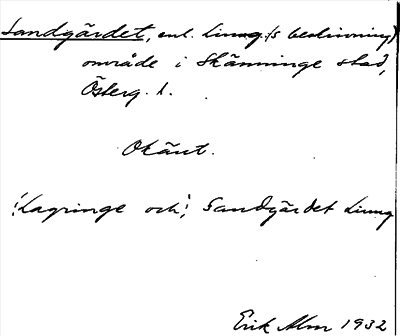 Sandgärdet, enl. Ljung (s beskrivning)
område i Skänninge stad,
Österg. l.
Okänt.
"Lagringe och" Sandgärdet Ljung
Erik Alm 1932